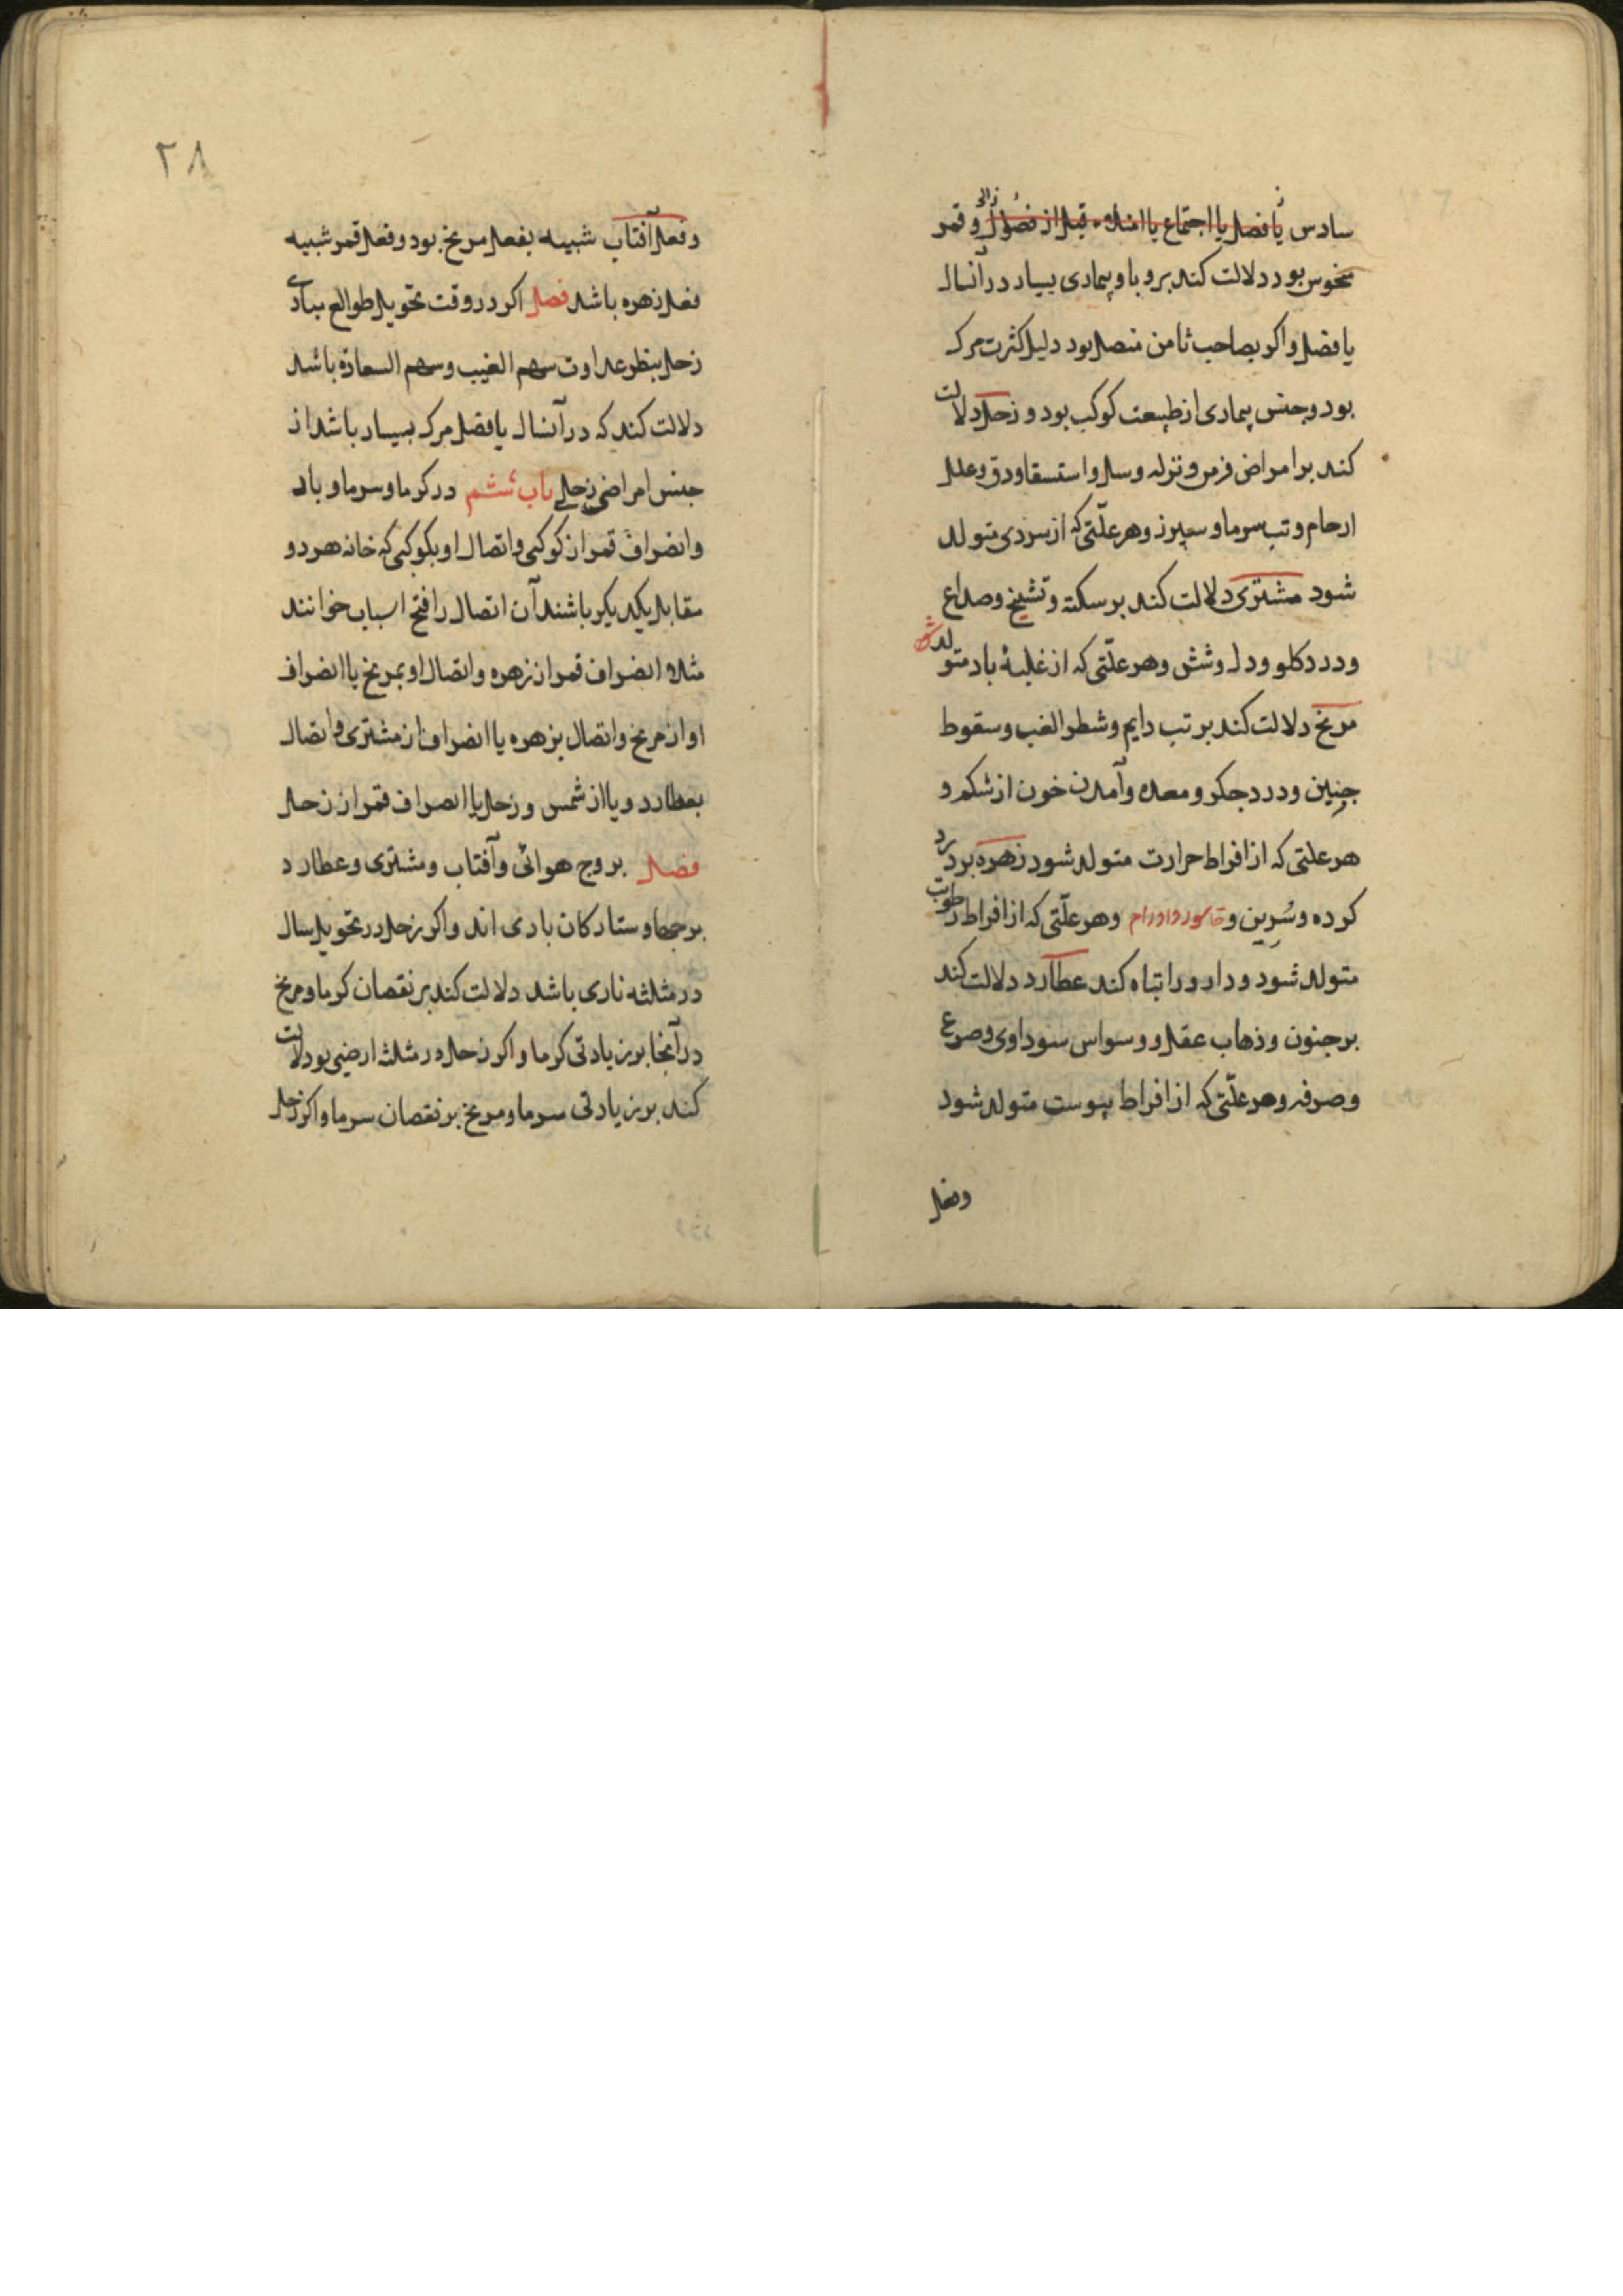 سادس یا فصل یا اجتماع یا امتلاء قبل از فصول و قمر
منحوس بود دلالت کند بر وبا و بیماری بسیار در آنسال
یا فصل و اکر بصاحب ثامن متصل بود دلیل کثرت مرک
بود و جنس بیماری از طبیعت کوکب بود و زحل دلالت
کند بر امراض مزمن و نزله و سل و استسقا و دق و علل
ارحام و تب سرما و سپرز و هر علّتی که از سردی متولد
شود مشتری دلالت کند بر سکته و تشنج و صداع
و درد کلو و دل و شش و هر علّتی که از غلبهٔ باد متولد
مریخ دلالت کند بر تب دایم و شطر الغب و سقوط
جنین و درد جکر و معده و آمدن خون از شکم و
هر علتی که از افراط حرارت متولد شود زهره بر درد
کرده و سُرین و و هر علّتی که از افراط رطوبت
متولد شود و دارو را تباه کند عطارد دلالت کند
بر جنون و ذهاب عقل و وسواس سوداوی و صرع
و صرفه و هر علّتی که از افراط یبوست متولد شود
وفعل
۲۸
وفعل آفتاب شبیه بفعل مریخ بود و فعل قمر شبیه
فعل زهره باشد فصل اکر در وقت تحویل طوالع مبادی
زحل بنظر عداوت سهم الغیب و سهم السعادة باشد
دلالت کند که در آنسال یا فصل مرک بسیار باشد از
جنس امراض زحلی باب ششم در کرما و سرما و باد
و انصراف قمر از کوکبی و اتصال او بکوکبی که خانه هر دو
مقابل یکدیکر باشند آن اتصال را فتح اسباب خوانند
مثلا انصراف قمر از زهره و اتصال او بمریخ یا انصراف
او از مریخ و اتصال بزهره یا انصراف از مشتری و اتصال
بعطارد و یا از شمس و زحل یا انصراف قمر از زحل
فصل بروج هوائی و آفتاب و مشتری و عطارد
برجها و ستارکان بادی اند و اکر زحل در تحویل سال
در مثلثه ناری باشد دلالت کند بر نقصان کرما و مریخ
در آنجا بر زیادتی کرما و اکر زحل در مثلثه ارضی بود دلالت
کند بر زیادتی سرما و مریخ بر نقصان سرما و اکر زحل